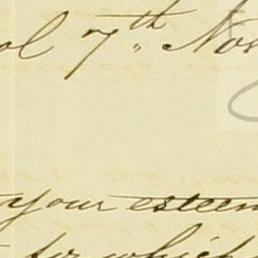 7th Nov
your esteem
for which